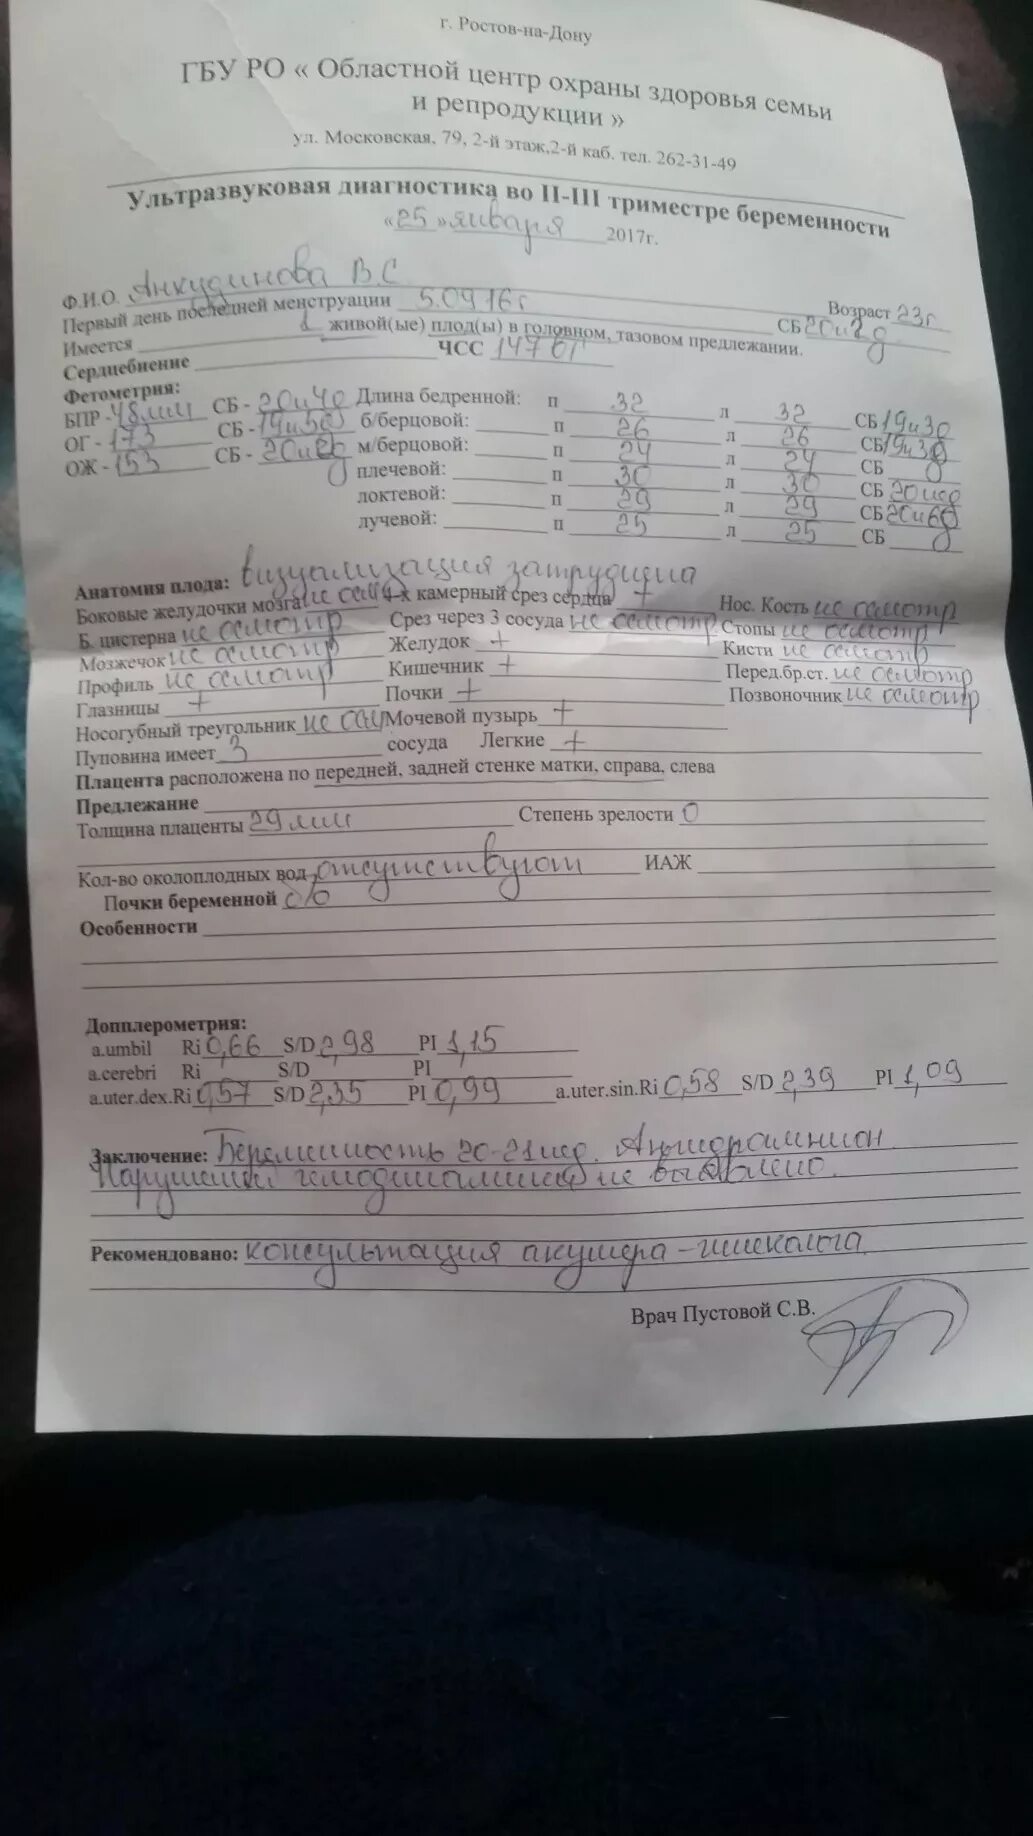 г. Ростов-на-Дону
ГБУ РО « Областной центр охраны здоровья семьи
и репродукции »
ул. Московская, 79, 2-й этаж,2-й каб. тел. 262-31-49
Ультразвуковая диагностика во II-III триместре беременности
«25» января 2017г.
Ф.И.О. Анкудинова В.С Возраст 23г
Первый день последней менструации 5.09 16г СБ 20н2д
Имеется 1 живой(ые) плод(ы) в головном, тазовом предлежании.
Сердцебиение ЧСС 147
Фетометрия:
БПР - 48мм СБ - 20н4д Длина бедренной: п 32 л 32 СБ 19н3д
ОГ - 173 СБ - 19н5д б/берцовой: п 26 л 26 СБ 19н3д
ОЖ - 153 СБ - м/берцовой: п 24 л 24 СБ
плечевой: п 30 л 30 СБ
локтевой: п 29 л 29 СБ 20н6д
лучевой: п 25 л 25 СБ
Анатомия плода: визуализация затруднена
Боковые желудочки мозга не осм 4-х камерный срез сердца + Нос. Кость не осмотр
Б. цистерна не осмотр Срез через 3 сосуда не осмотр Стопы не осмотр
Мозжечок не осмотр Желудок + Кисти не осмотр
Профиль не осмотр Кишечник + Перед.бр.ст. не осмотр
Глазницы + Почки + Позвоночник не осмотр
Носогубный треугольник не осм Мочевой пузырь +
Пуповина имеет 3 сосуда Легкие +
Плацента расположена по передней, задней стенке матки, справа, слева
Предлежание
Толщина плаценты 29мм Степень зрелости 0
Кол-во околоплодных вод отсутствуют ИАЖ
Почки беременной б/о
Особенности
Допплерометрия:
a.umbil Ri 0,66 S/D 2,98 PI 1,15
a.cerebri Ri S/D PI
a.uter.dex.Ri 0,57 S/D 2,35 PI 0,99 a.uter.sin.Ri 0,58 S/D 2,39 PI 1,09
Заключение: Беременность 20-21нед. Ангидрамнион
Нарушений гемодинамики не выявлено.
Рекомендовано: консультация акушера-гинеколога
Врач Пустовой С.В.